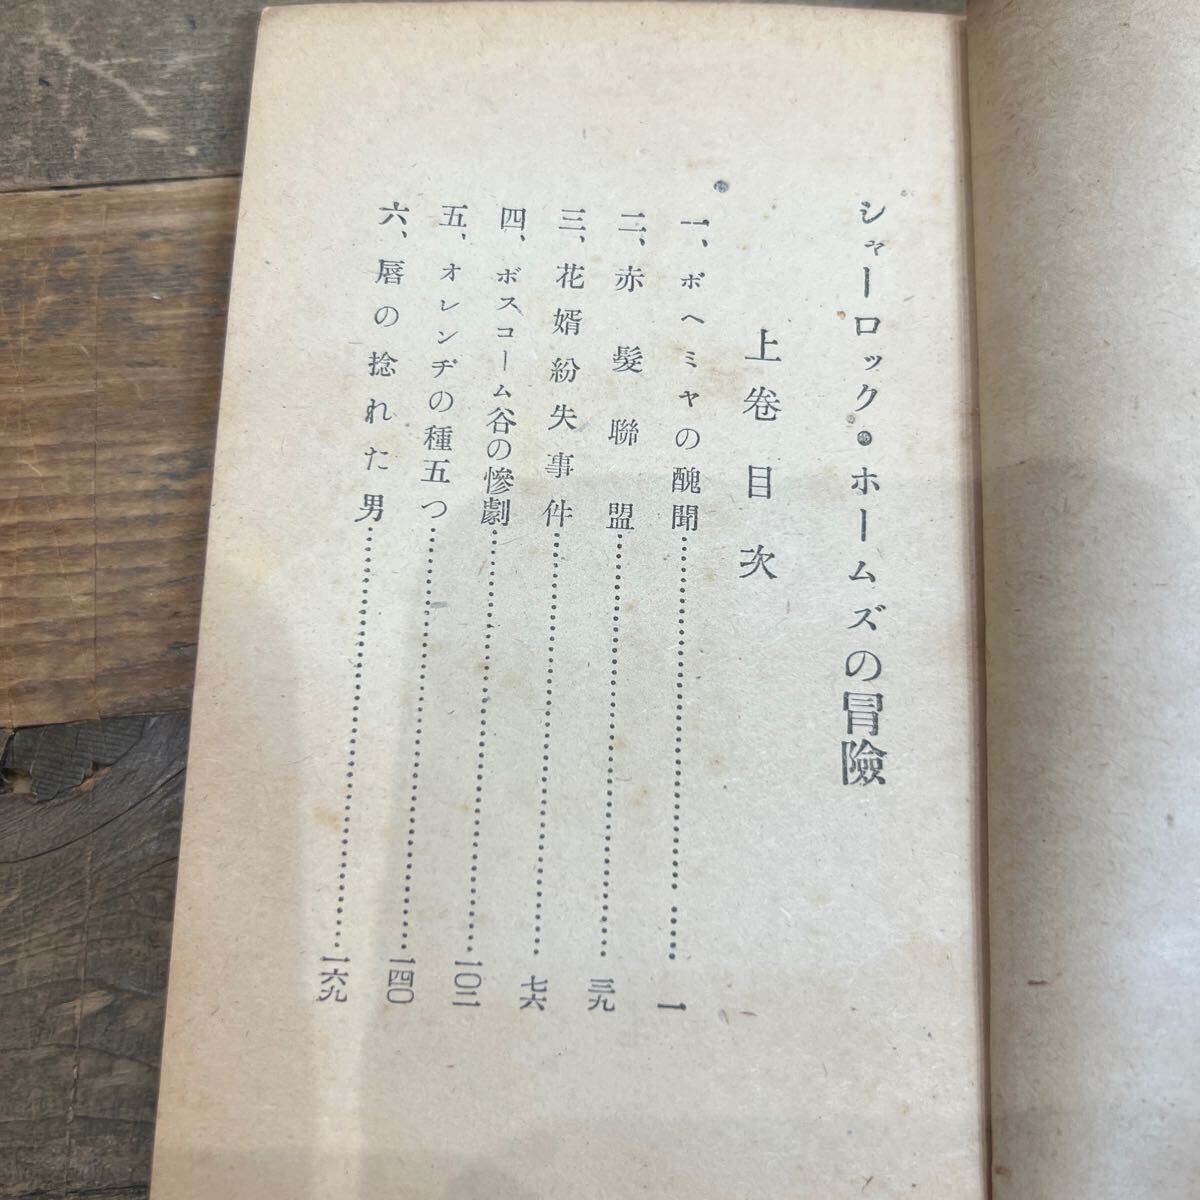 シャーロック・ホームズの冒險
上卷目次
一、ボヘミヤの醜聞……一
二、赤髮聯盟……三九
三、花婿紛失事件……七六
四、ボスコーム谷の慘劇……一〇二
五、オレンヂの種五つ……一四〇
六、唇の捻れた男……一六九